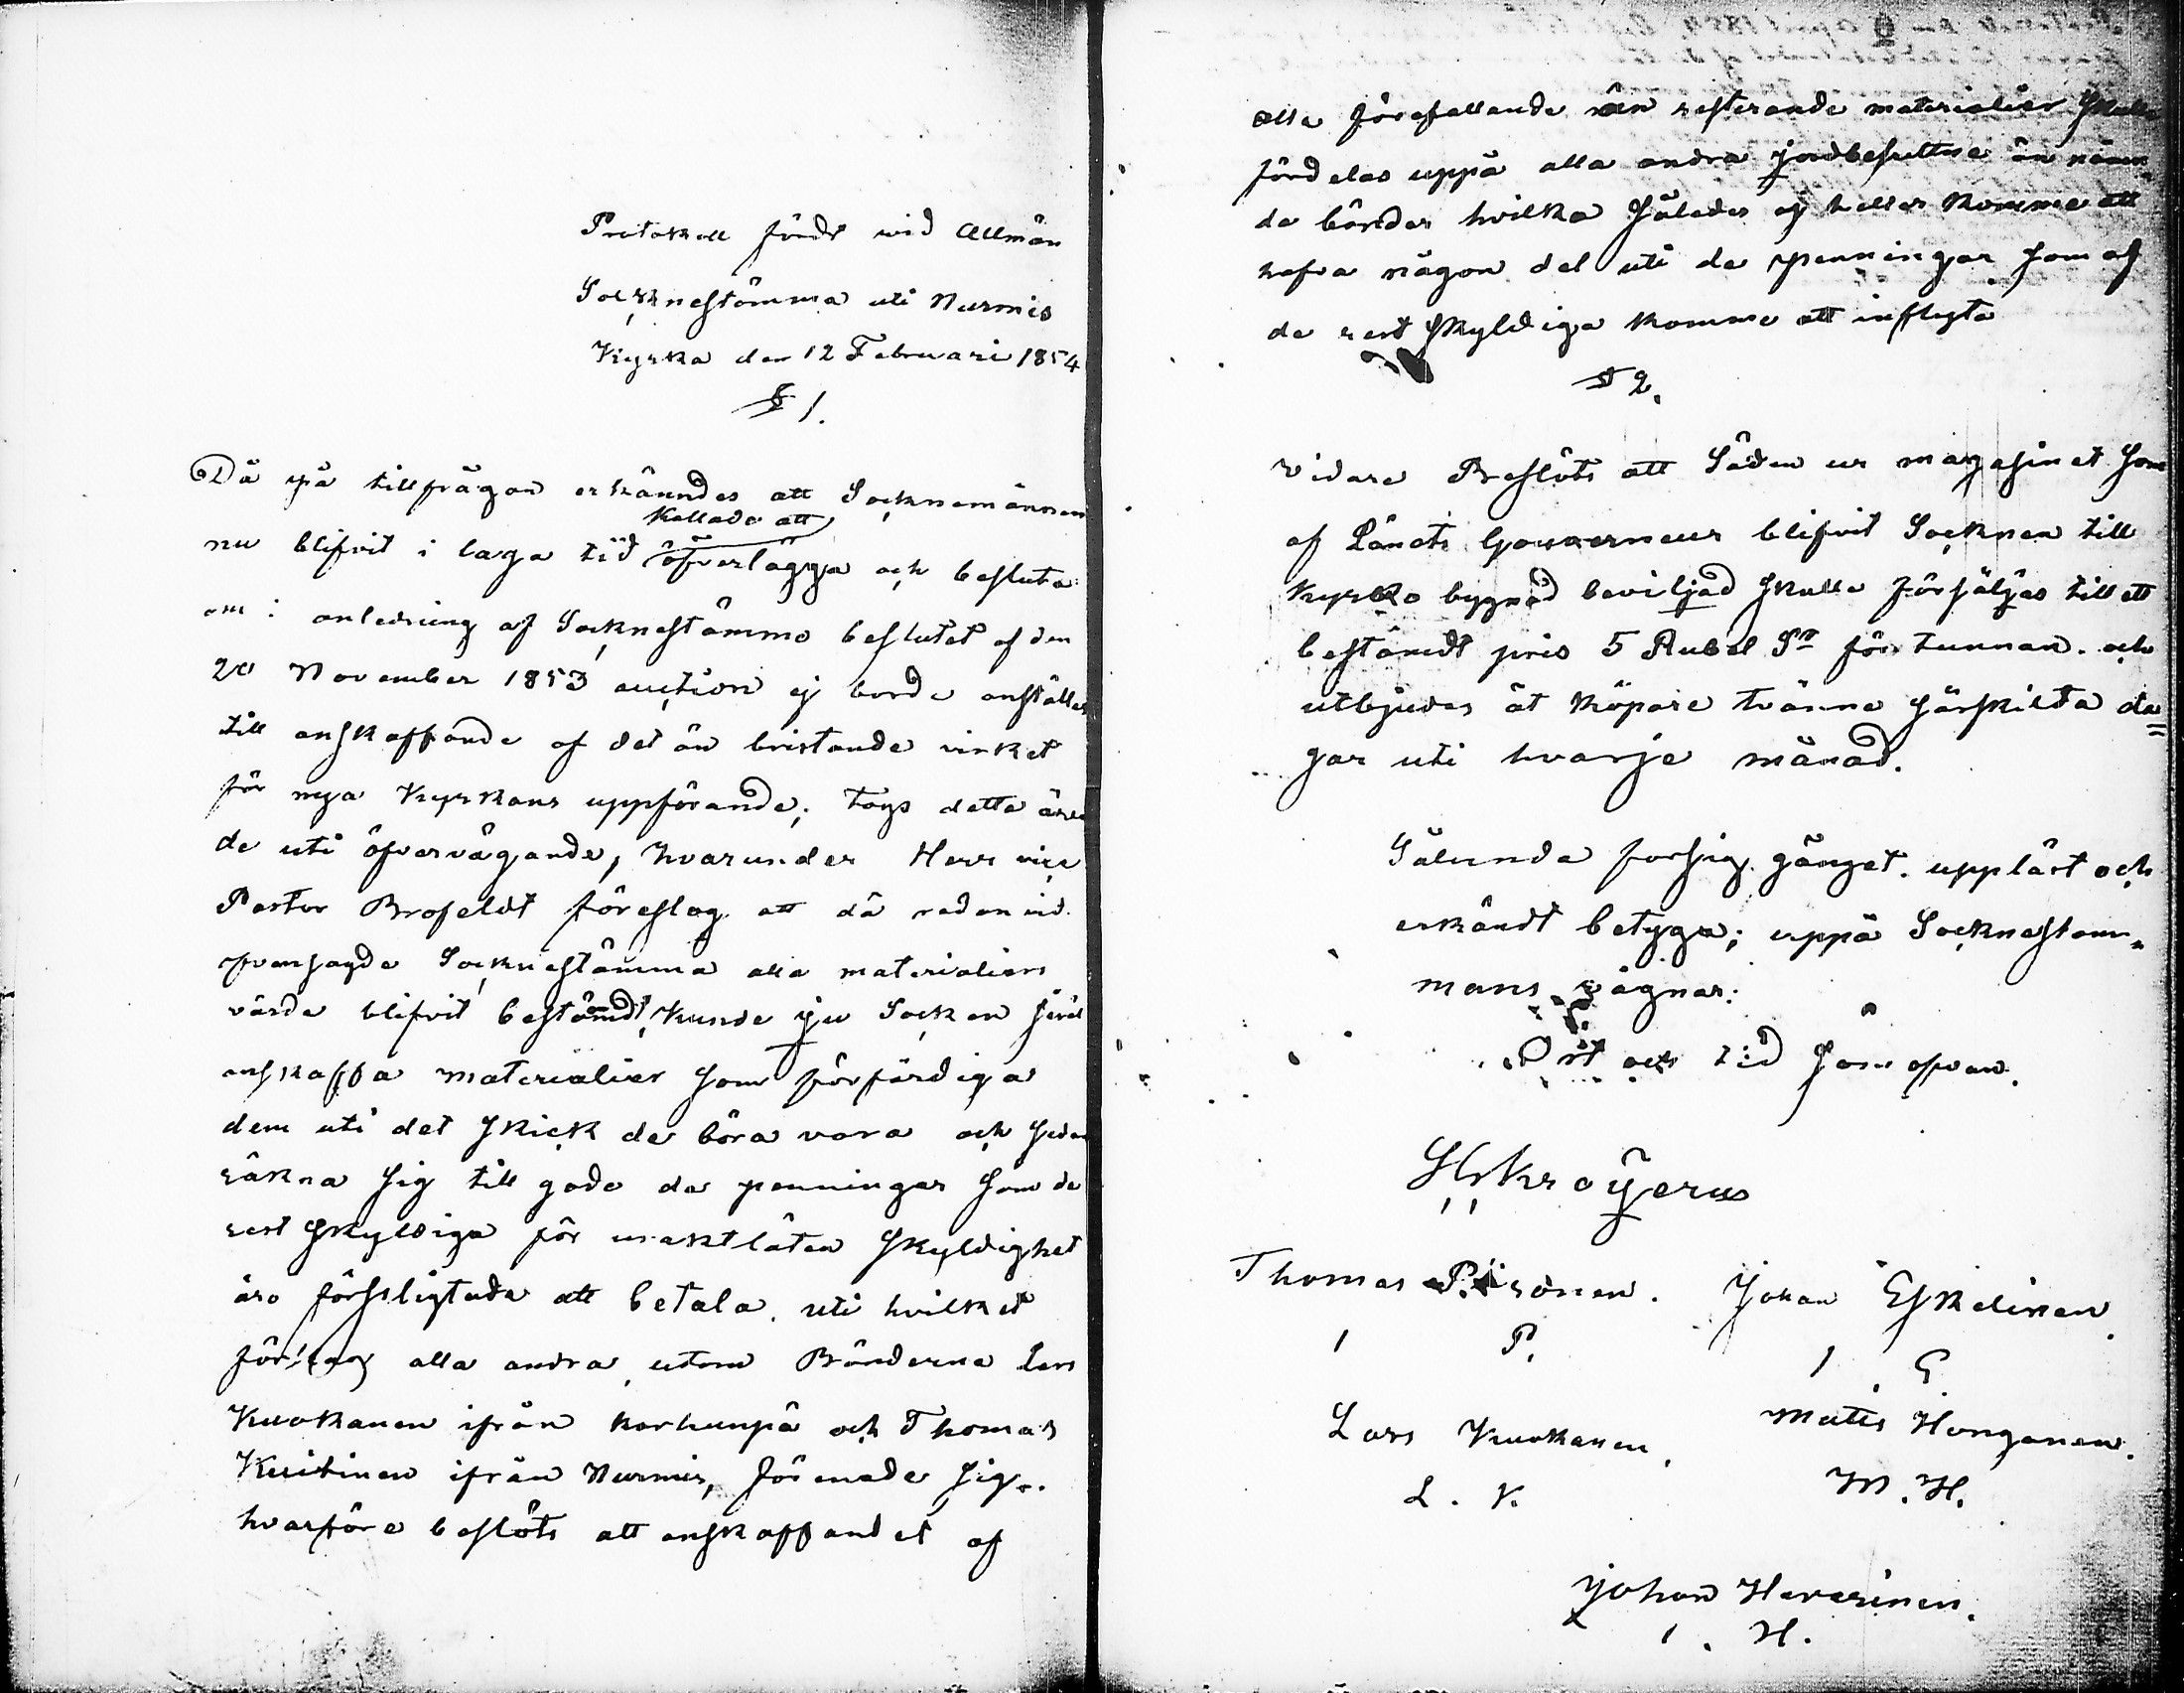 Protokoll fördt wid Allmän
Socknestämma uti Nurmis
Kyrka den 12 Februari 1854
§ 1.
Då på tillfrågan erkändes att Socknemännen
kallade att
nu blifvit i laga tid öfverlägga och besluta
om i anledning af Socknestämmo beslutet af den
20 November 1853 auction ej borde anställas
till anskaffande af det än bristande virket
för nya Kyrkans uppförande; togs detta ären
de uti öfvervägande, hvarunder Herr vice
Pastor Brofeldt föreslog att då redan vid
ofvansagde Sockne stämma alla materialiers
värde blifvit bestämdt, kunde ju Socken sjelf
anskaffa materialier som förfärdiga
dem uti det skick de böra vara och sedan
räkna sig till godo de penningar som de
rest skyldiga för uraktlåten skyldighet
äro förpligtade att betala. uti hvilket
förslag alla andra utom Bönderne Lars
Kuokanen ifrån korhunpä och Thomas
Kuitinen ifrån Nurmis, förenade sig.
hvarföre beslöts att anskaffandet af
alla förefallande än resterande materialier skulle
fördelas uppå alla andra jordbesuttne än nämn
de bönder hvilka således ej heller komme att
hafva någon del uti de penningar som af
de rest skyldiga komme att inflyta
§ 2.
Vidare Beslöts att Säden ur magasinet som
af Länets Gouverneur blifvit Socknen till
kyrko bygnad beviljad skulle försäljas till ett
bestämdt pris 5 Rubel Sr för tunnan. och
utbjudes åt köpare tvänne särskilta da=
gar uti hvarje månad.
Sålunda försig gånget. uppläst och
erkändt betyga; uppå Socknestäm=
mans vägnar:
Ort och tid som ofvan.
Thomas Piironen. Johan Eskelinen
I P. I. E.
Lars Kuokanen. Matis Honganen.
L. K. M. H.
Johan Heverinen.
I. H.